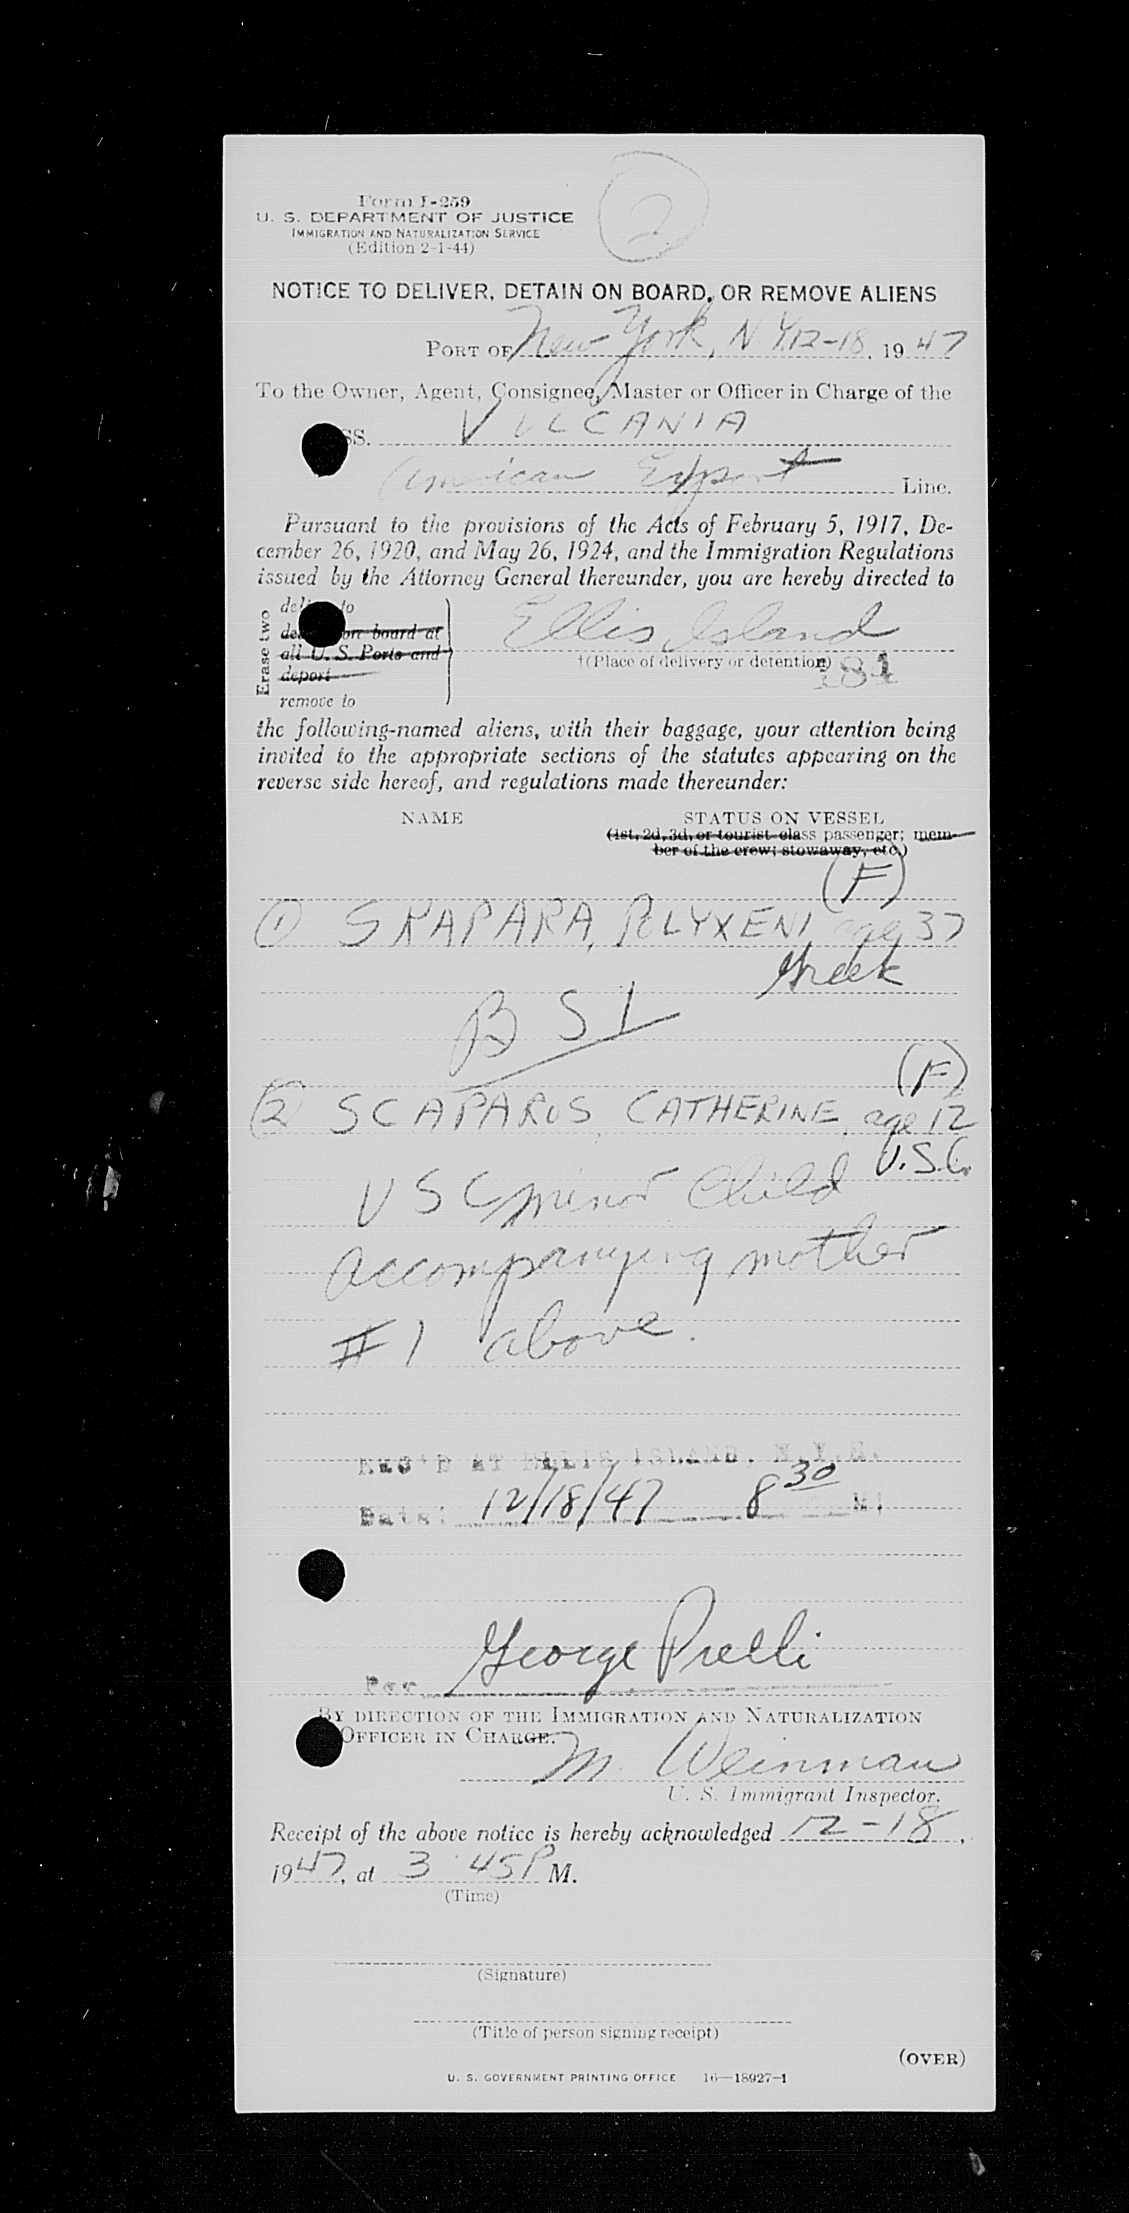 2
Form I-259
U. S. DEPARTMENT OF JUSTICE
IMMIGRATION AND NATURALIZATION SERVICE
(Edition 2-1-44)
NOTICE TO DELIVER, DETAIN ON BOARD, OR REMOVE ALIENS
PORT OF New York, N.Y. 12-18, 1947
To the Owner, Agent, Consignee, Master or Officer in Charge of the
SS. VULCANIA
American Export Line.
Pursuant to the provisions of the Acts of February 5, 1917, De-
cember 26, 1920, and May 26, 1924, and the Immigration Regulations
issued by the Attorney General thereunder, you are hereby directed to
Erase two
deliver to
detain on board at
all U. S. Ports and
deport
remove to
Ellis Island
†(Place of delivery or detention)
181
the following-named aliens, with their baggage, your attention being
invited to the appropriate sections of the statutes appearing on the
reverse side hereof, and regulations made thereunder:
NAME STATUS ON VESSEL
(1st, 2d, 3d, or tourist class passenger; mem-
ber of the crew; stowaway, etc.)
(F)
① SKAPARA, POLYXENI age 37
Greek
B S I
(F)
② SCAPARUS, CATHERINE, age 12
U.S.C.
USC minor child
accompanying mother
#1 above.
REC'D AT ELLIS ISLAND, N.Y.H.
Date: 12/18/47 8 30 M;
Per George Prelli
BY DIRECTION OF THE IMMIGRATION AND NATURALIZATION
OFFICER IN CHARGE.
M. Weinman
U. S. Immigrant Inspector.
Receipt of the above notice is hereby acknowledged 12-18,
1947, at 3 45 P M.
(Time)
(Signature)
(Title of person signing receipt)
(OVER)
U. S. GOVERNMENT PRINTING OFFICE 16—18927-1